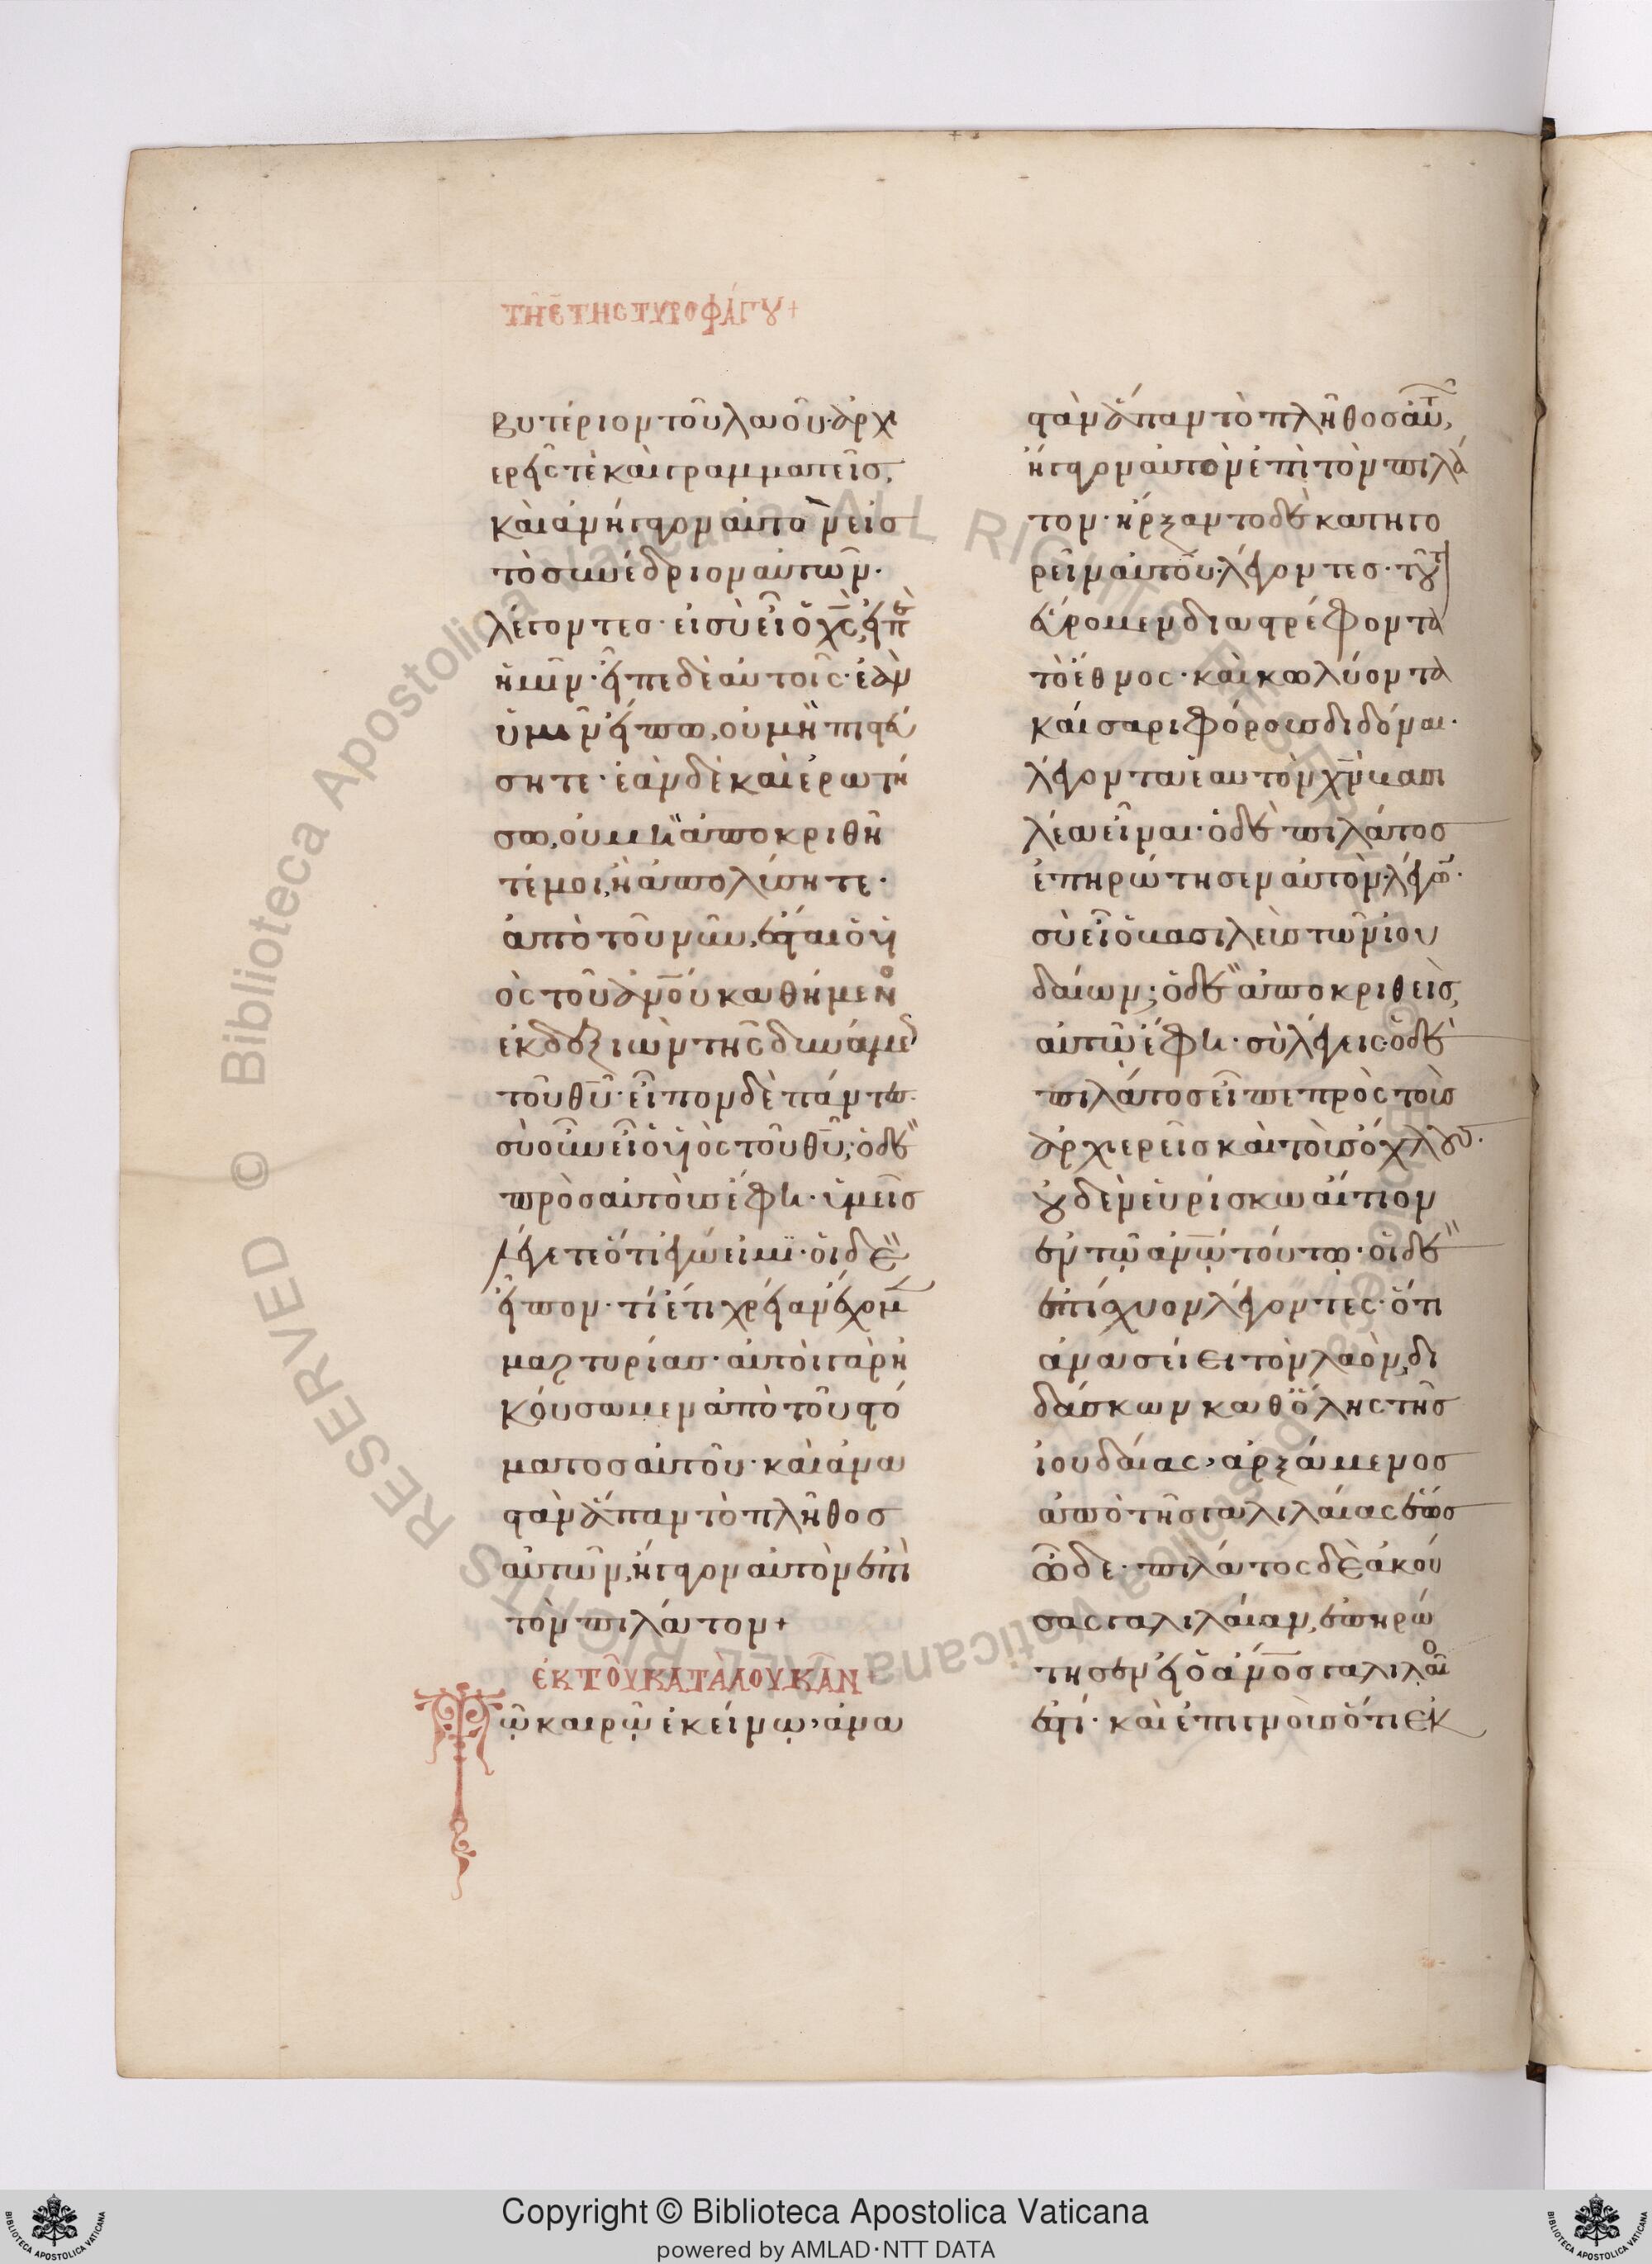 τῆ ε̄ τῆς τυροφάγου +
βυτέριον τοῦ λαοῦ· ἀρχι
ερεῖς τὲ καὶ γραμματεῖς,
καὶ ἀνήγαγον αὐτὸν εἰσ
τὸ συνέδριον αὐτῶν·
λέγοντες· εἰ σὺ εἶ ὁ χς̄, εἰπὲ
ἡμῖν· εἶπε δὲ αὐτοῖς· ἐὰν
ὑμῖν εἴπω, οὐ μὴ πιστεύ
σητε· ἐὰν δὲ καὶ ἐρωτή
σω, οὐ μὴ ἀποκριθῆ
τέ μοι, ἢ ἀπολύσητε·
ἀπὸ τοῦ νῦν, ἔσται ὁ υἱ
ὸς τοῦ ἀνοῦ καθήμενο
ἐκ δεξιῶν τῆς δυνάμε
τοῦ θῦ· εἶπον δὲ πάντες·
σὺ οὖν εἶ ὁ υἱὸς τοῦ θῦ; ὁ δὲ
πρὸς αὐτοὺς ἔφη· ὑμεῖς
λέγετε ὅτι ἐγώ εἰμι· οἱ δὲ
εἶπον· τί ἔτι χρείαν ἔχομ
μαρτυρίας· αὐτοὶ γὰρ ἠ
κούσαμεν ἀπὸ τοῦ στό
ματος αὐτοῦ· καὶ ἀνα
στὰν ἅπαν τὸ πλῆθοσ
αὐτῶν, ἤγαγον αὐτὸν ἐπὶ
τὸν πιλάτον +
ἐκ τοῦ κατὰ λουκᾶν
Τῷ καιρῷ ἐκείνῳ, ἀνα
στὰν ἅπαν τὸ πλῆθος αὐτ,
ἤγαγον αὐτὸν ἐπὶ τὸν πιλά
τον· ἤρξαντο δὲ κατηγο
ρεῖν αὐτοῦ· λέγοντες· τοῦτ
εὕρομεν διαστρέφοντα
τὸ ἔθνος· καὶ κωλύοντα
καίσαρι φόρους διδόναι·
λέγοντα ἑαυτὸν χν̄ βασι
λέα εἶναι· ὁ δὲ πιλάτοσ
ἐπηρώτησεν αὐτὸν· λέγω·
σὺ εἶ ὁ βασιλεὺς τῶν ἰου
δαίων; ὁ δὲ ἀποκριθεὶς,
αὐτῷ ἔφη· σὺ λέγεις· ὁ δὲ
πιλάτος εἶπε πρὸς τοὺς
ἀρχιερεῖς καὶ τοὺς ὄχλους·
οὐδὲν εὑρίσκω αἴτιον
ἐν τῷ ἀνῷ τούτῳ· οἱ δὲ
ἐπίσχυον λέγοντες· ὅτι
ἀνασείει τὸν λαὸν, δι
δάσκων καθ' ὅλης τῆς
ἰουδαίας, ἀρξάμενοσ
ἀπὸ τῆς γαλιλαίας ἕως
ὧδε· πιλάτος δὲ ἀκού
σας γαλιλαίαν, ἐπηρώ
τησεν εἰ ὁ ἄνος γαλιλαῖο
ἐστί· καὶ ἐπιγνοὺς ὅτι ἐκ
Copyright © Biblioteca Apostolica Vaticana
powered by AMLAD·NTT DATA